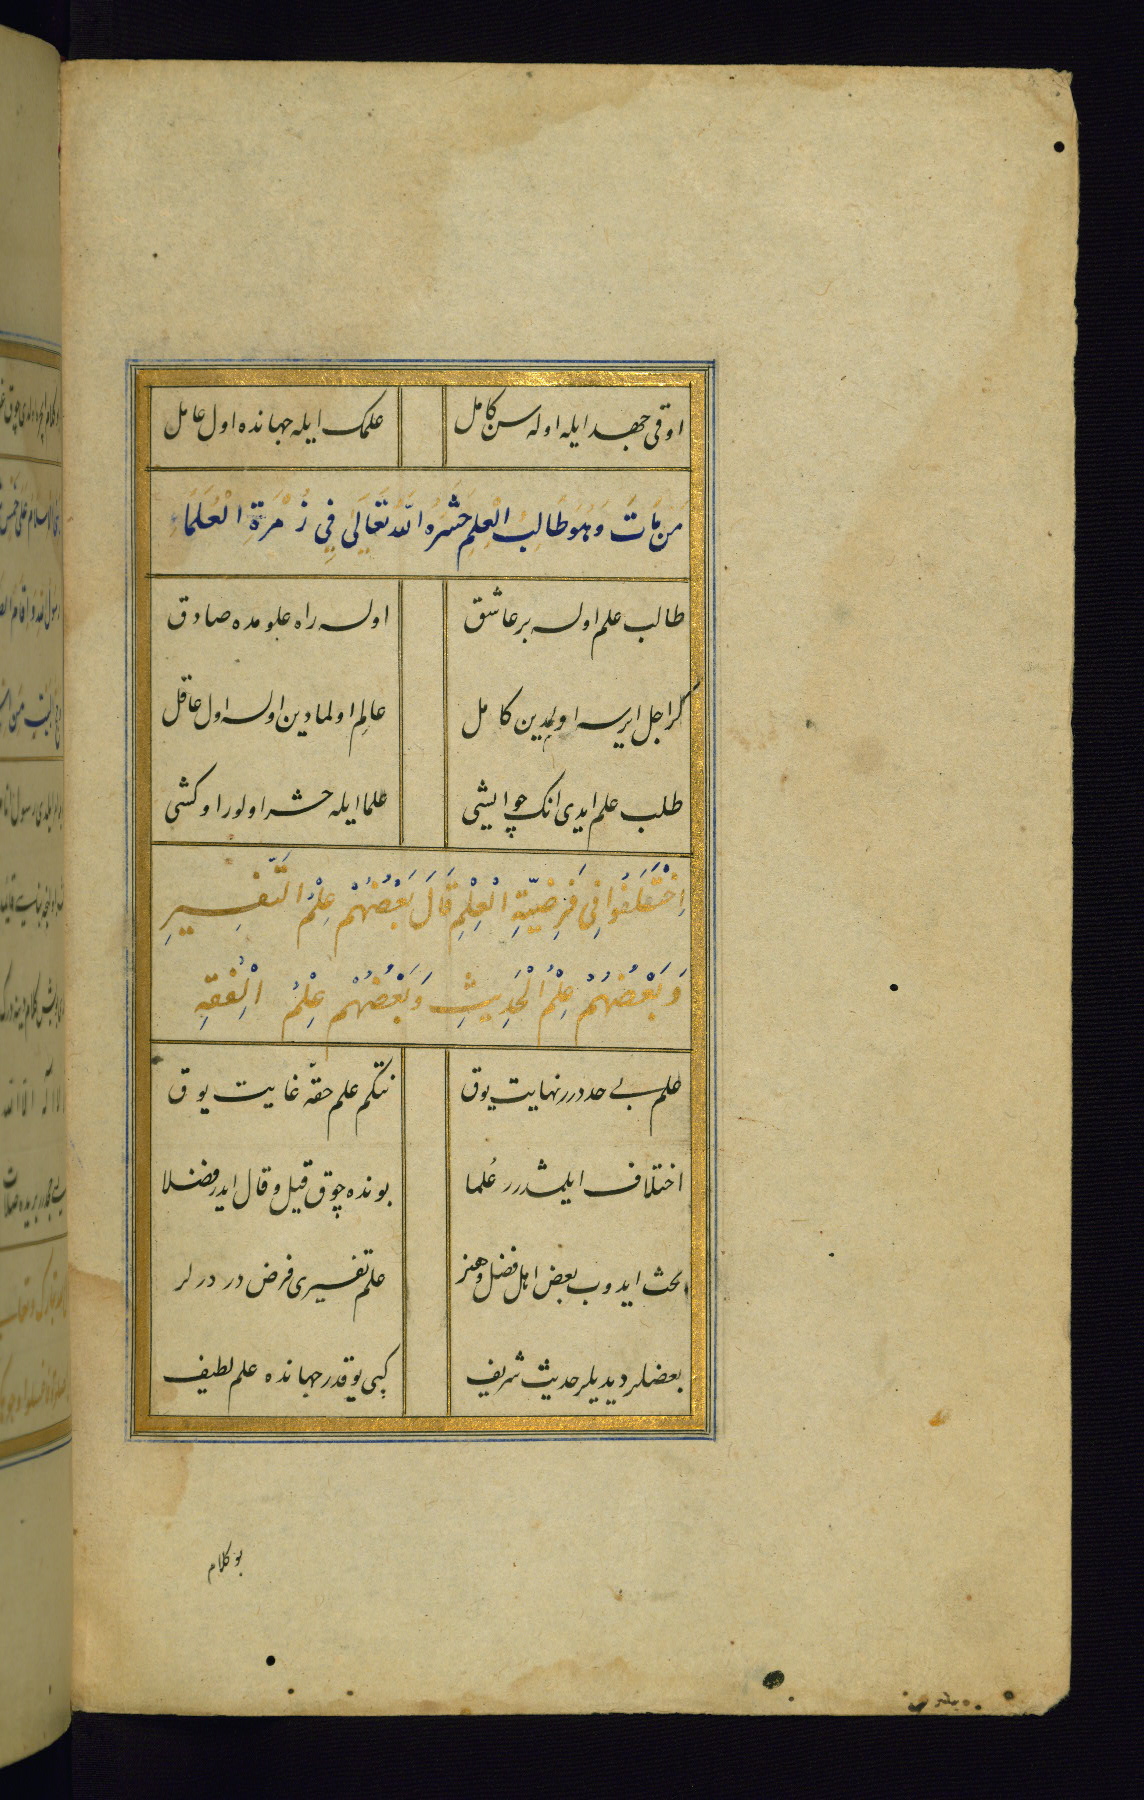 اوقی جهد ایله اوله سن کامل علمک ایله جهانده اول عامل
مَن مَاتَ وَهُوَ طَالِبُ الْعِلْمِ حَشَرَهُ اللّٰهُ تَعَالَى فِي زُمْرَةِ الْعُلَمَاء
طالب علم اولسه بر عاشق اولسه راه علومده صادق
کر اجل ایرسه اولمدین کامل عالم اولمادین اولسه اول عاقل
طلب علم ایدی انک چو ایشی علما ایله حشر اولور او کشی
اِخْتَلَفُوا فِى فَرْضِيَّةِ الْعِلْمِ قَالَ بَعْضُهُمْ عِلْمُ التَّفْسِيرِ
وَبَعْضُهُمْ عِلْمُ الْحَدِيثِ وَبَعْضُهُمْ عِلْمُ الْفِقْهِ
علم بی حددرر نهایت یوق نتکم علم حقه غایت یوق
اختلاف ایلمشدرر عُلما بونده چوق قیل و قال ایدر فضلا
بحث ایدوب بعض اهل فضل و هنر علم تفسیری فرض در درلر
بعضلر دیدیلر حدیث شریف کبی یوقدر جهانده علم لطیف
بو کلام